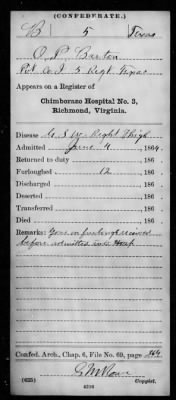 (CONFEDERATE.)
B 5 Texas
O. P. Barton
Pvt Co. I 5 Regt. Texas
Appears on a Register of
Chimborazo Hospital No. 3,
Richmond, Virginia.
Disease G. S. W. Right Thigh
Admitted June 4, 1864.
Returned to duty , 186 .
Furloughed 12, 186 .
Discharged , 186 .
Deserted , 186 .
Transferred , 186 .
Died , 186 .
Remarks: Gone on furlough received
before admitted into Hosp
Confed. Arch., Chap. 6, File No. 69, page 264
(635) Copyist.